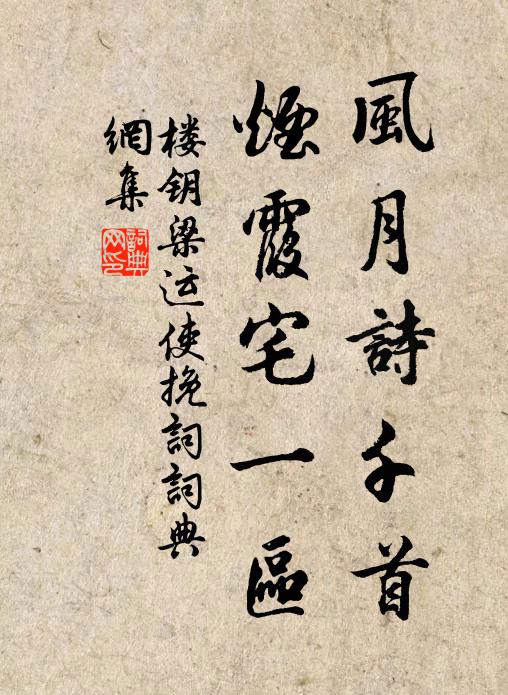 風月詩千首
煙霞宅一區
楼钥梁运使挽詞詞典
網集
詞典
网印